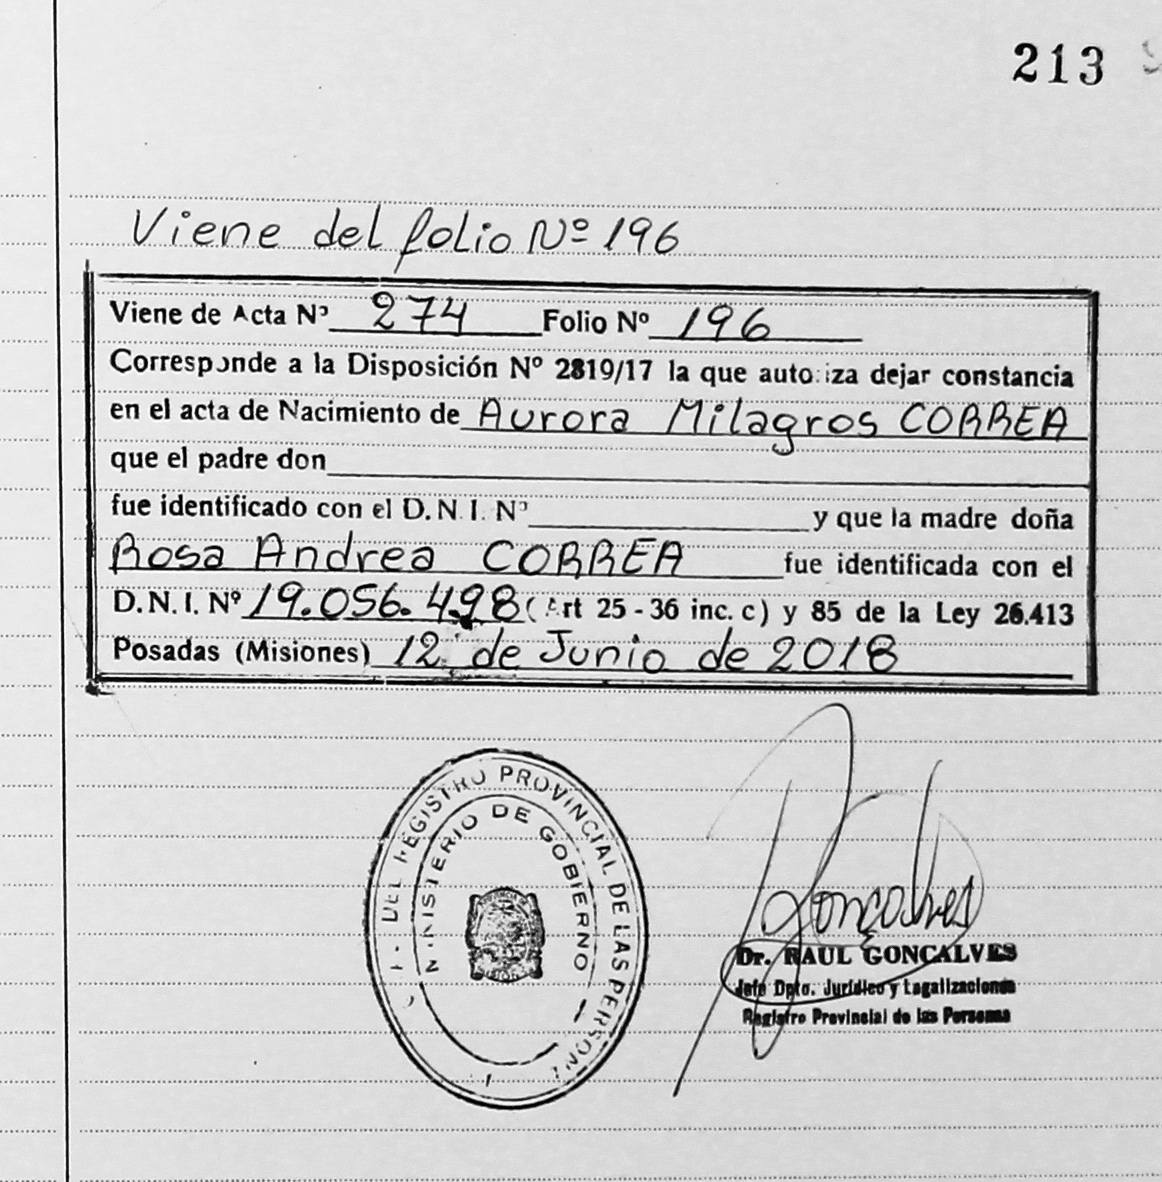 213
Viene del folio Nº 196
Viene de Acta Nº 274 Folio Nº 196
Corresponde a la Disposición Nº 2819/17 la que autoriza dejar constancia
en el acta de Nacimiento de Aurora Milagros CORREA
que el padre don
fue identificado con el D.N.I. Nº y que la madre doña
Rosa Andrea CORREA fue identificada con el
D.N.I. Nº 19.056.498 (Art 25 - 36 inc. c) y 85 de la Ley 26.413
Posadas (Misiones) 12 de Junio de 2018
DEL REGISTRO PROVINCIAL DE LAS PERSONAS
MINISTERIO DE GOBIERNO
Goncalves
Dr. RAUL GONCALVES
Jefe Dpto. Jurídico y Legalizaciones
Registro Provincial de las Personas